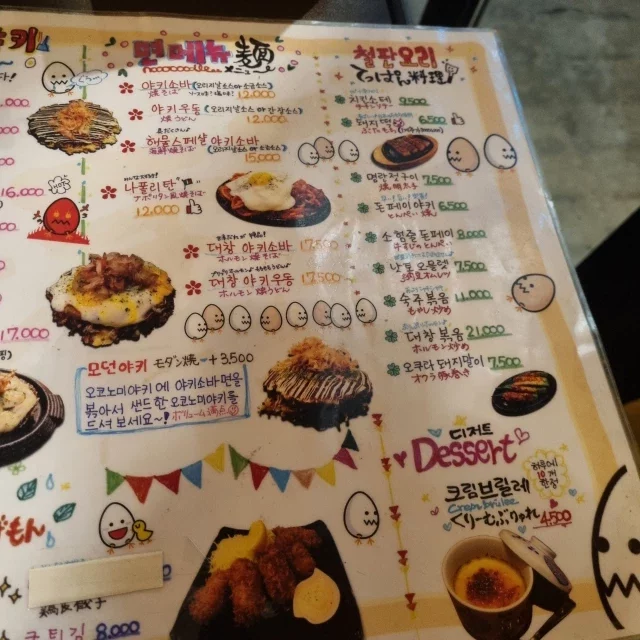 면 메뉴 麺
メニュー
야키소바
12.000
야키우동
焼うどん
12.000
해물스페셜 야키소바
海鮮焼そば
15.000
나폴리탄
ナポリタン風焼そば
12.000
대창 야키소바 17.500
ホルモン焼そば
대창 야키우동 17.500
ホルモン焼うどん
모던야키 モダン焼 + 3,500
오코노미야키에 야키소바면을
볶아서 샌드한 오코노미야키를
드셔 보세요~!
16.000
17.000
철판요리
てっぱん料理
치킨소테 9.500
6.500
명란젓구이 7.500
焼明太子
돈페이야키 6.500
とんぺい焼
8.000
낭물 오믈렛 7.500
숙주볶음 11.000
もやし炒め
대창볶음 21.000
ホルモン炒め
오쿠라 돼지말이 7.500
オクラ豚巻き
디저트
Dessert
하루에
10개
한정
크림브륄레
くりーむぶりゅれ 4.500
もん
8.000